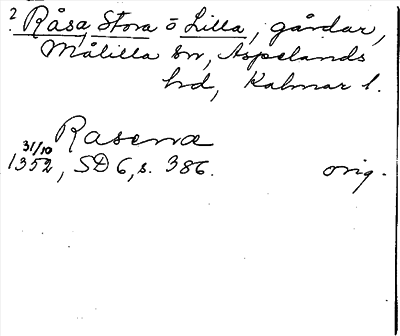 ? Råsa, Stora o Lilla, gårdar,
Målilla sn, Aspelands
hd, Kalmar l.
Rasema
31/10
1352, SD 6, s. 386. orig.